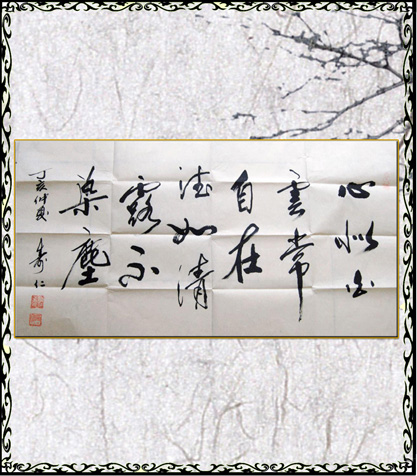 心似白
雲常
自在
德如清
露不
染塵
丁亥仲夏
仁